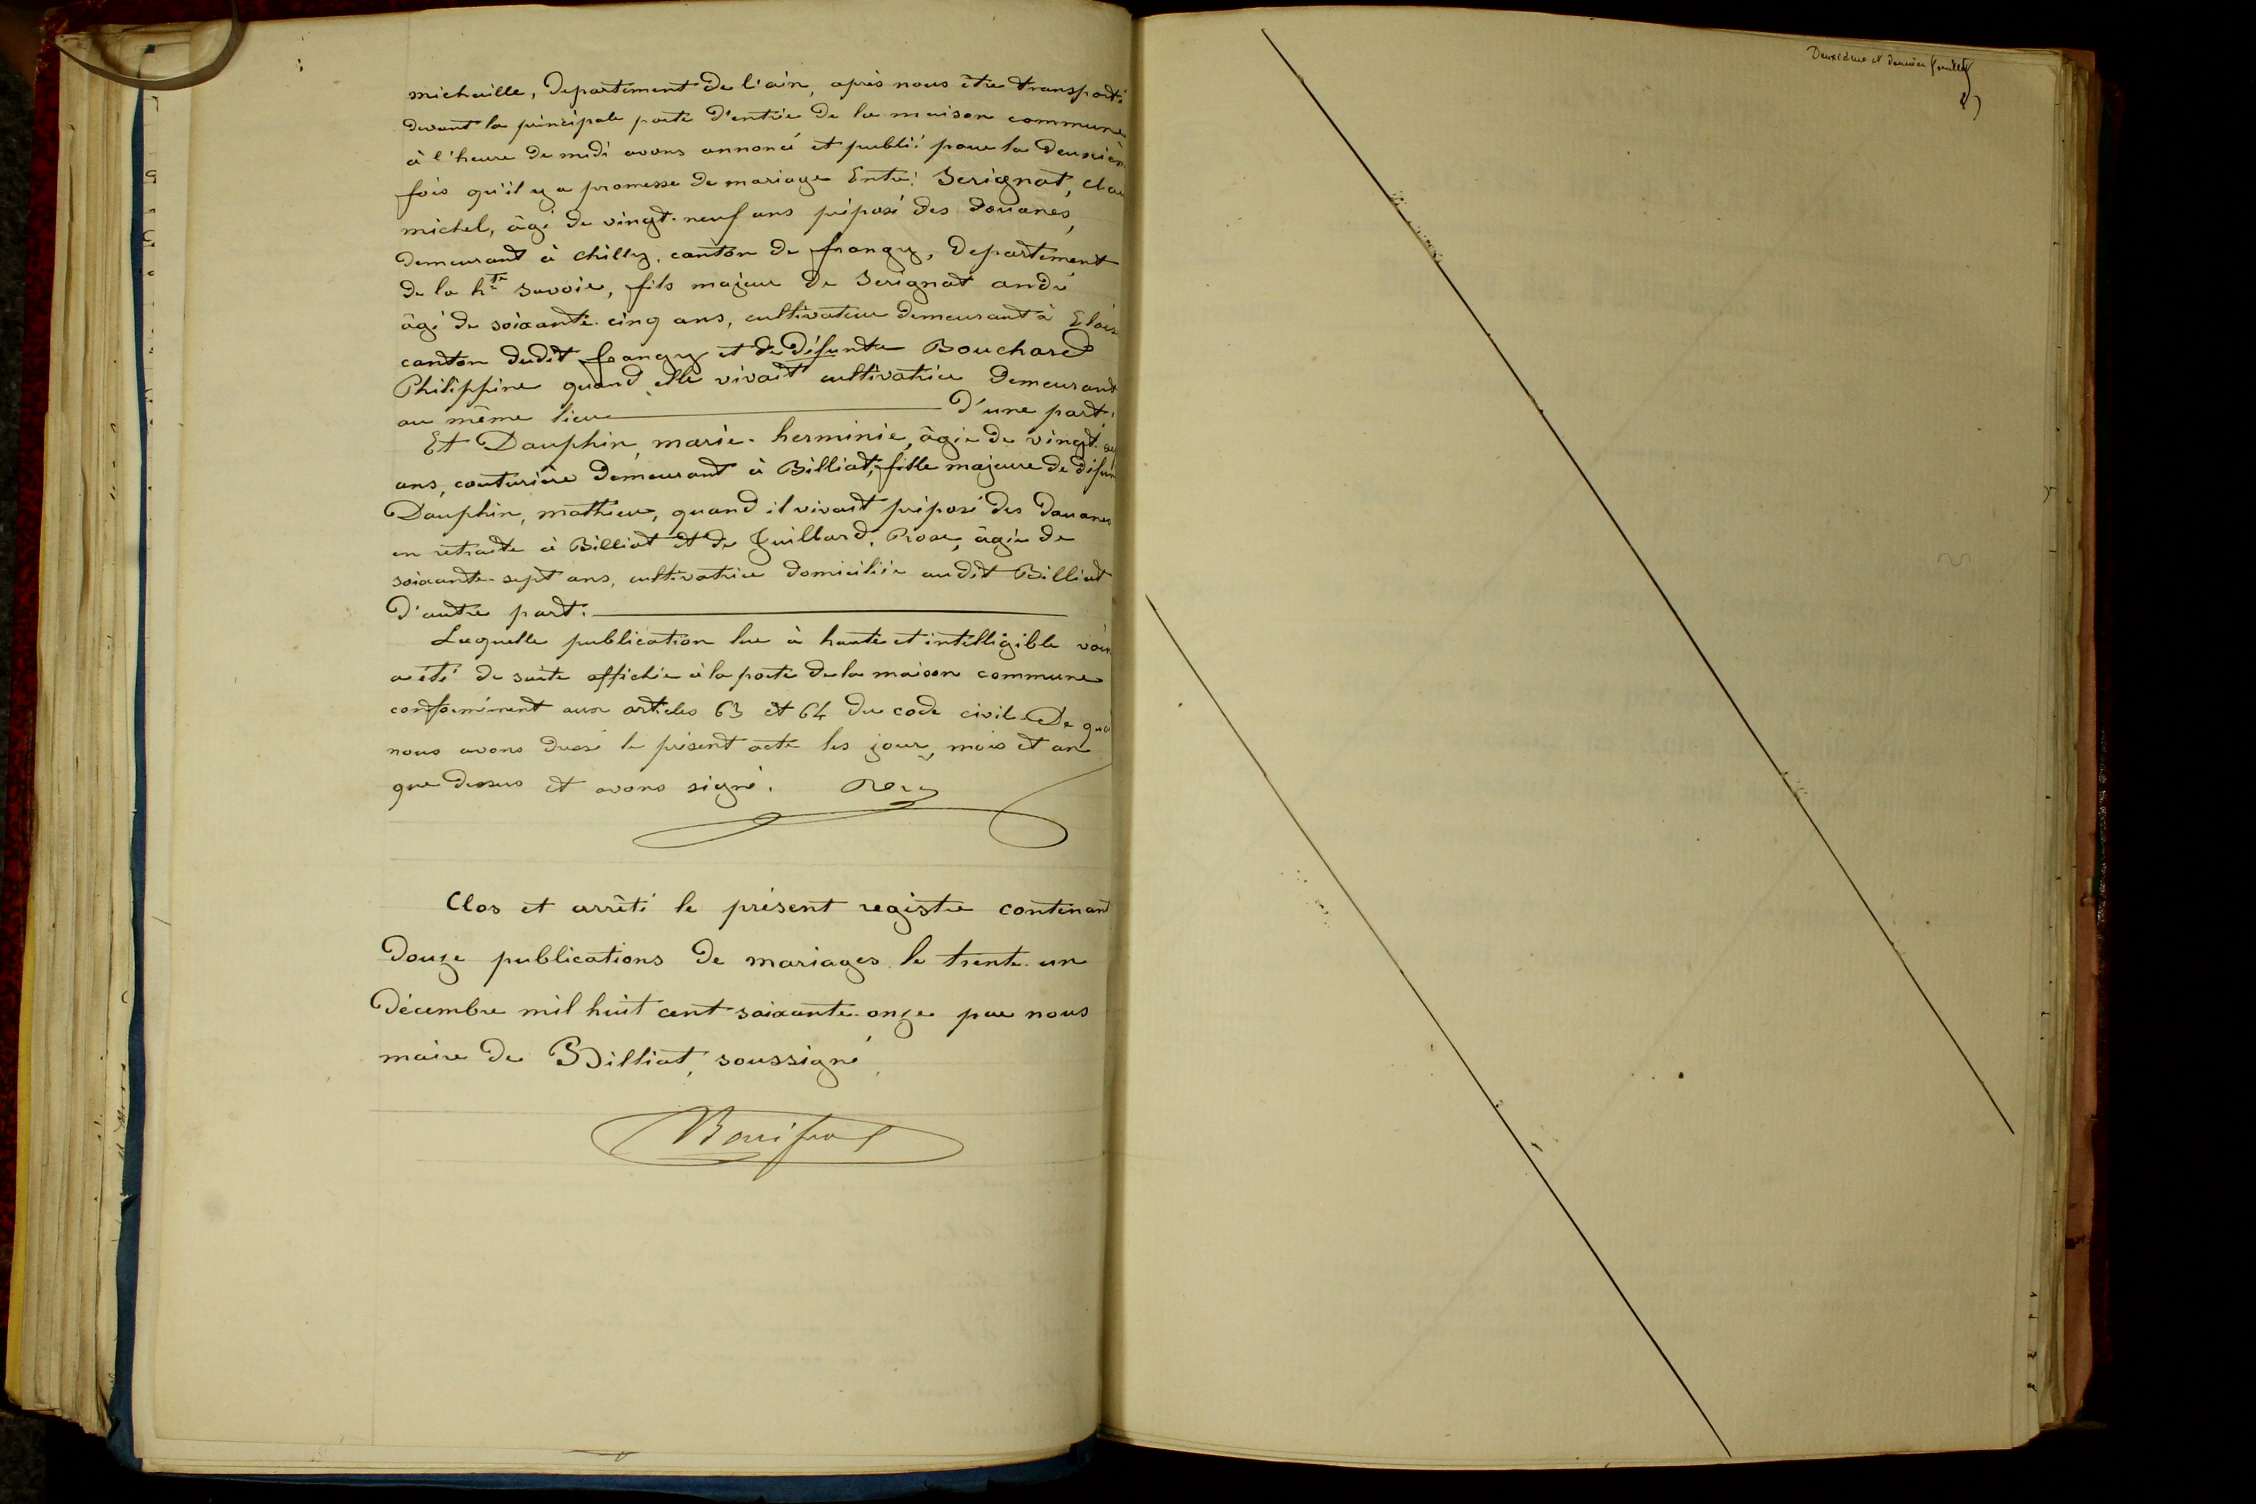 michaille, Departement de l'ain, après nous être transporté
devant la principale porte d'entrée de la maison commune
à l'heure de midi avons annoncé et publié pour la deuxièm
fois qu'il y a promesse de mariage Entre: Serignat, Clau
michel, âgé de vingt-neuf ans préposé des douanes,
demeurant à chilly, canton de frangy, Departement
de la hte Savoie, fils majeur de Serignat andré
âgé de soixante-cinq ans, cultivateur demeurant à Eloise
canton dudit frangy et de défunte Bouchard
Philippine quand elle vivait cultivatrice demeurant
au même lieu d'une part.
Et Dauphin, marie-herminie, âgée de vingt-
ans, couturière demeurant à Billiat, fille majeure de défun
Dauphin, mathieu, quand il vivait préposé des douanes
en retraite à Billiat et de Juillard, Rose, âgée de
soixante-sept ans, cultivatrice domiciliée audit Billiat
d'autre part.
Laquelle publication lue à haute et intelligible voix
a été de suite affichée à la porte de la maison commune
conformément aux articles 63 et 64 du code civil. De quoi
nous avons dressé le présent acte les jour, mois et an
que dessus et avons signé.
Clos et arrêté le présent registre contenant
douze publications de mariages le trente-un
décembre mil huit cent soixante-onze par nous
maire de Billiat, soussigné
Deuxième et dernier feuillet